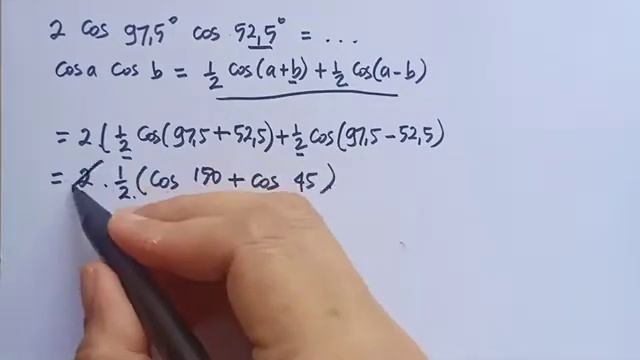 2 cos 97,5° cos 52,5° = ...
cos a cos b = 1/2 cos(a+b) + 1/2 cos(a-b)
= 2 ( 1/2 cos(97,5+52,5) + 1/2 cos(97,5-52,5)
= 2 . 1/2 (cos 150 + cos 45)